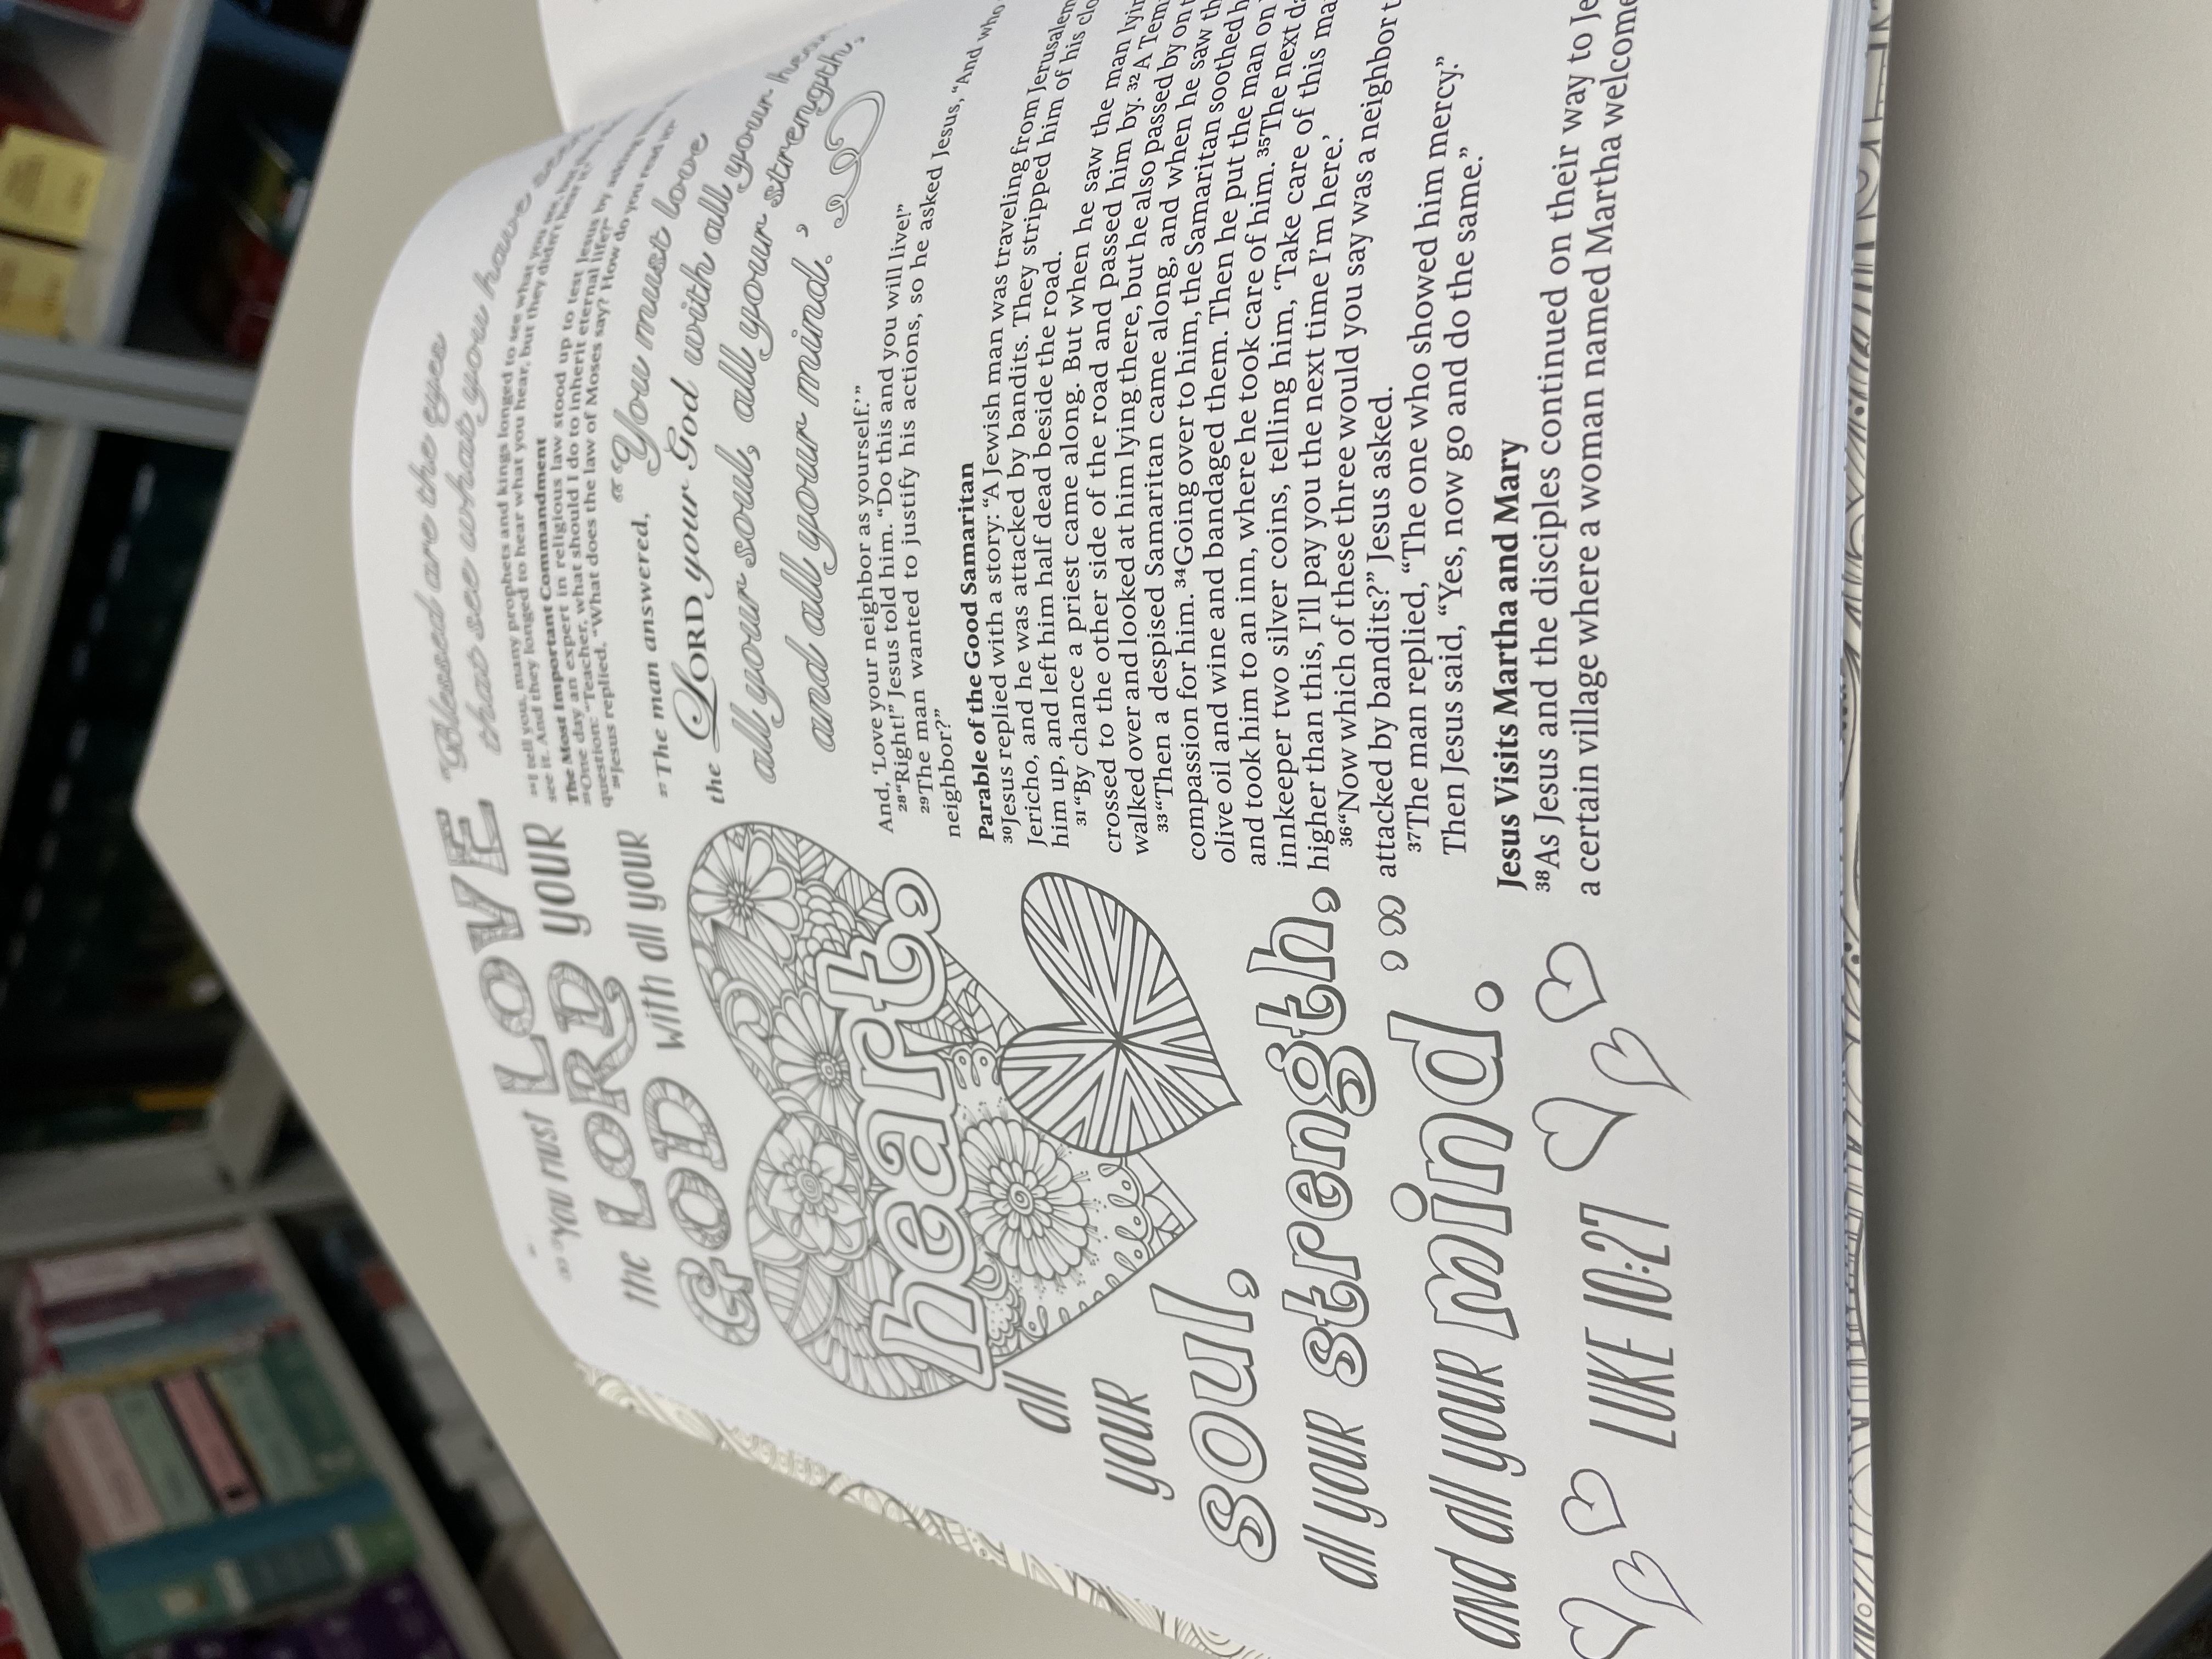 “You must LOVE
the LORD YOUR
GOD with all YOUR
heart,
all
YOUR
soul,
all YOUR strength,
and all YOUR mind.”
LUKE 10:27
“Blessed are the eyes
that see what you have
²⁴I tell you, many prophets and kings longed to see what you see, but
see it. And they longed to hear what you hear, but they didn’t hear it.”
The Most Important Commandment
²⁵One day an expert in religious law stood up to test Jesus by asking
question: “Teacher, what should I do to inherit eternal life?”
²⁶Jesus replied, “What does the law of Moses say? How do you read it?”
²⁷The man answered, “‘You must love
the LORD your God with all your
all your soul, all your strength,
and all your mind.’
And, ‘Love your neighbor as yourself.’”
²⁸“Right!” Jesus told him. “Do this and you will live!”
²⁹The man wanted to justify his actions, so he asked Jesus, “And who
neighbor?”
Parable of the Good Samaritan
³⁰Jesus replied with a story: “A Jewish man was traveling from Jerusalem
Jericho, and he was attacked by bandits. They stripped him of his clo
him up, and left him half dead beside the road.
³¹“By chance a priest came along. But when he saw the man lyin
crossed to the other side of the road and passed him by. ³²A Tem
walked over and looked at him lying there, but he also passed by on t
³³“Then a despised Samaritan came along, and when he saw th
compassion for him. ³⁴Going over to him, the Samaritan soothed h
olive oil and wine and bandaged them. Then he put the man on
and took him to an inn, where he took care of him. ³⁵The next da
innkeeper two silver coins, telling him, ‘Take care of this ma
higher than this, I’ll pay you the next time I’m here.’
³⁶“Now which of these three would you say was a neighbor t
attacked by bandits?” Jesus asked.
³⁷The man replied, “The one who showed him mercy.”
Then Jesus said, “Yes, now go and do the same.”
Jesus Visits Martha and Mary
³⁸As Jesus and the disciples continued on their way to Je
a certain village where a woman named Martha welcome